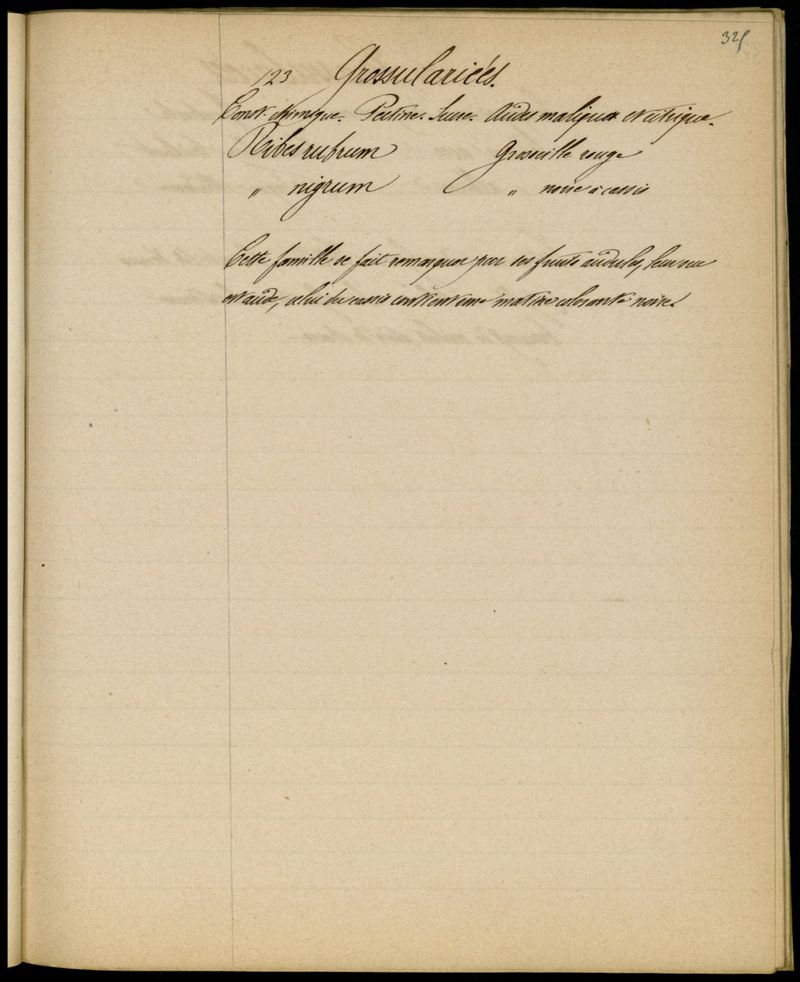 325
123 Grossulariées.
Const. chimique. Pectine. Sucre. Acides malique et citrique.
Ribes rubrum Groseille rouge
" nigrum " noire ou cassis
Cette famille se fait remarquer par ses fruits acidules, leur suc
est acide, celui du cassis contient une matière colorante noire.